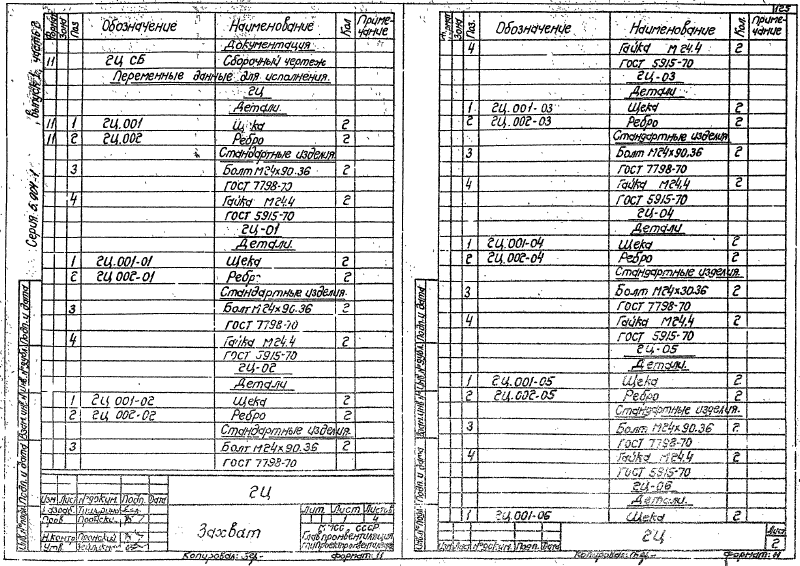 Серия 5.904-1 Выпуск 1, часть 8
Формат Зона Поз. Обозначение Наименование Кол Примечание
Документация
11 2Ц СБ Сборочный чертеж
Переменные данные для исполнения.
2Ц
Детали.
11 1 2Ц.001 Щека 2
11 2 2Ц.002 Ребро 2
Стандартные изделия
3 Болт М24х90.36 2
ГОСТ 7798-70
4 Гайка М24.4 2
ГОСТ 5915-70
2Ц-01
Детали.
1 2Ц.001-01 Щека 2
2 2Ц.002-01 Ребро 2
Стандартные изделия.
3 Болт М24х90.36 2
ГОСТ 7798-70
4 Гайка М24.4 2
ГОСТ 5915-70
2Ц-02
Детали
1 2Ц 001-02 Щека 2
2 2Ц 002-02 Ребро 2
Стандартные изделия
3 Болт М24х90.36 2
ГОСТ 7798-70
Инв.№подл. Подп. и дата Взам.инв.№ Инв.№дубл. Подп. и дата
Изм Лист №докум. Подп. Дата
Разраб.
Пров
Н.контр
Утв.
2Ц
Захват
Лит. Лист Листов
1 4
СССР
Главпромвентиляция
Копировал: Формат 11
125
Зона Поз. Обозначение Наименование Кол. Примечание
4 Гайка М24.4 2
ГОСТ 5915-70
2Ц-03
Детали.
1 2Ц.001-03 Щека 2
2 2Ц.002-03 Ребро 2
Стандартные изделия
3 Болт М24х90.36 2
ГОСТ 7798-70
4 Гайка М24.4 2
ГОСТ 5915-70
2Ц-04
Детали.
1 2Ц.001-04 Щека 2
2 2Ц.002-04 Ребро 2
Стандартные изделия.
3 Болт М24х90.36 2
ГОСТ 7798-70
4 Гайка М24.4 2
ГОСТ 5915-70
2Ц-05
Детали.
1 2Ц.001-05 Щека 2
2 2Ц.002-05 Ребро 2
Стандартные изделия.
3 Болт М24х90.36 2
ГОСТ 7798-70
4 Гайка М24.4 2
ГОСТ 5915-70
2Ц-06
Детали.
1 2Ц.001-06 Щека 2
Инв.№подл. Подп. и дата Взам.инв.№ Инв.№дубл. Подп. и дата
Изм Лист №докум. Подп. Дата
2Ц
Лист
2
Копировал: Формат 11